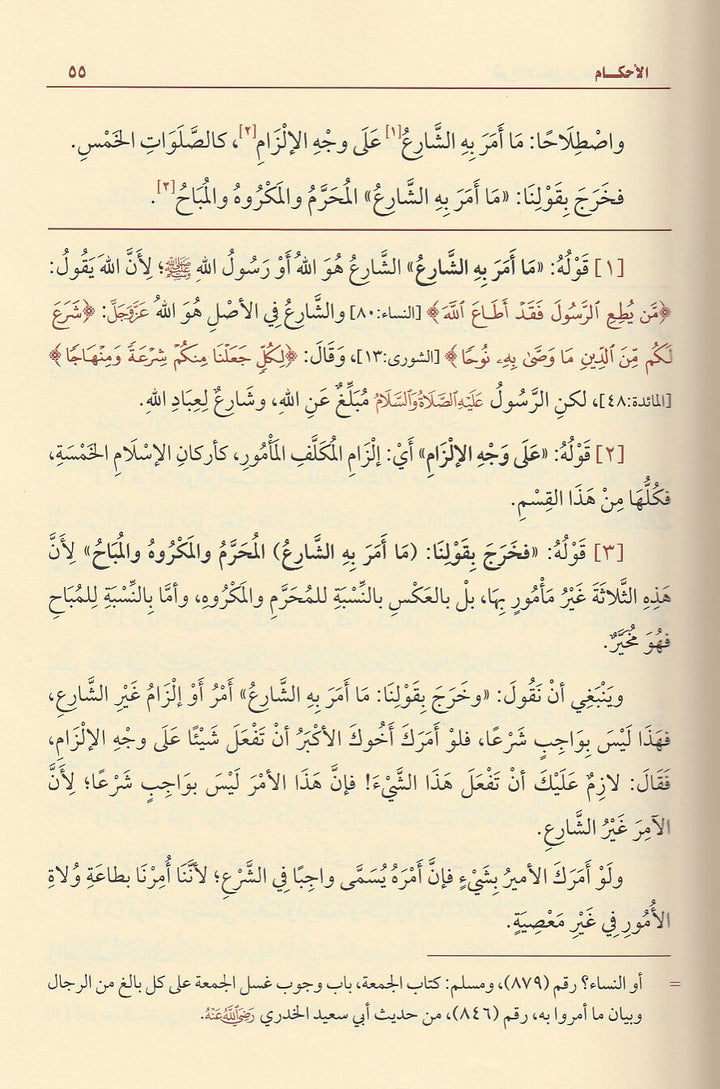 الأحكام ٥٥
واصْطِلَاحًا: مَا أَمَرَ بِهِ الشَّارِعُ[١] عَلَى وجْهِ الإلْزَامِ[٢]، كالصَّلَوَاتِ الخَمْسِ.
فخَرَجَ بِقَوْلِنَا: «مَا أَمَرَ بِهِ الشَّارِعُ» المُحَرَّمُ والمَكْرُوهُ والمُبَاحُ[٣].
[١] قَوْلُهُ: «مَا أَمَرَ بِهِ الشَّارِعُ» الشَّارِعُ هُوَ اللهُ أَوْ رَسُولُ اللهِ ﷺ؛ لِأَنَّ اللهَ يَقُولُ:
﴿مَّن يُطِعِ ٱلرَّسُولَ فَقَدۡ أَطَاعَ ٱللَّهَ﴾ [النساء:٨٠] والشَّارِعُ فِي الأصْلِ هُوَ اللهُ عَزَّوَجَلَّ: ﴿شَرَعَ
لَكُم مِّنَ ٱلدِّينِ مَا وَصَّىٰ بِهِۦ نُوحًا﴾ [الشورى:١٣]، وَقَالَ: ﴿لِكُلّٖ جَعَلۡنَا مِنكُمۡ شِرۡعَةٗ وَمِنۡهَاجًا﴾
[المائدة:٤٨]، لكنِ الرَّسُولُ عَلَيْهِ الصَّلَاةُ وَالسَّلَامُ مُبَلِّغٌ عَنِ اللهِ، وشَارِعٌ لِعِبَادِ اللهِ.
[٢] قَوْلُهُ: «عَلَى وَجْهِ الإلْزَامِ» أَيْ: إلْزَامِ المُكَلَّفِ المَأْمُورِ، كأركانِ الإسْلَامِ الخَمْسَةِ،
فكُلُّهَا مِنْ هَذَا القِسْمِ.
[٣] قَوْلُهُ: «فخَرَجَ بِقَوْلِنَا: (مَا أَمَرَ بِهِ الشَّارِعُ) المُحَرَّمُ والمَكْرُوهُ والمُبَاحُ» لِأَنَّ
هَذِهِ الثَّلَاثَةَ غَيْرُ مَأْمُورٍ بِهَا، بلْ بالعَكْسِ بالنِّسْبَةِ للمُحَرَّمِ والمَكْرُوهِ، وأمَّا بالنِّسْبَةِ للمُبَاحِ
فهُوَ مُخَيَّرٌ.
ويَنْبَغِي أنْ نَقُولَ: «وخَرَجَ بِقَوْلِنَا: مَا أَمَرَ بِهِ الشَّارِعُ» أَمْرُ أَوْ إلْزَامُ غَيْرِ الشَّارِعِ،
فهَذَا لَيْسَ بِوَاجِبٍ شَرْعًا، فلوْ أمَرَكَ أَخُوكَ الأكْبَرُ أنْ تَفْعَلَ شَيْئًا عَلَى وجْهِ الإلْزَامِ،
فَقَالَ: لازِمٌ عَلَيْكَ أنْ تَفْعَلَ هَذَا الشَّيْءَ! فإنَّ هَذَا الأمْرَ لَيْسَ بوَاجِبٍ شَرْعًا؛ لِأَنَّ
الآمِرَ غَيْرُ الشَّارِعِ.
ولَوْ أمَرَكَ الأميرُ بِشَيْءٍ فإنَّ أمْرَهُ يُسَمَّى واجِبًا فِي الشَّرْعِ؛ لأنَّنَا أُمِرْنَا بطاعَةِ وُلاةِ
الأُمُورِ فِي غَيْرِ مَعْصِيَةٍ.
= أو النساء؟ رقم (٨٧٩)، ومسلم: كتاب الجمعة، باب وجوب غسل الجمعة على كل بالغ من الرجال
وبيان ما أمروا به، رقم (٨٤٦)، من حديث أبي سعيد الخدري رَضِيَ اللَّهُ عَنْهُ.